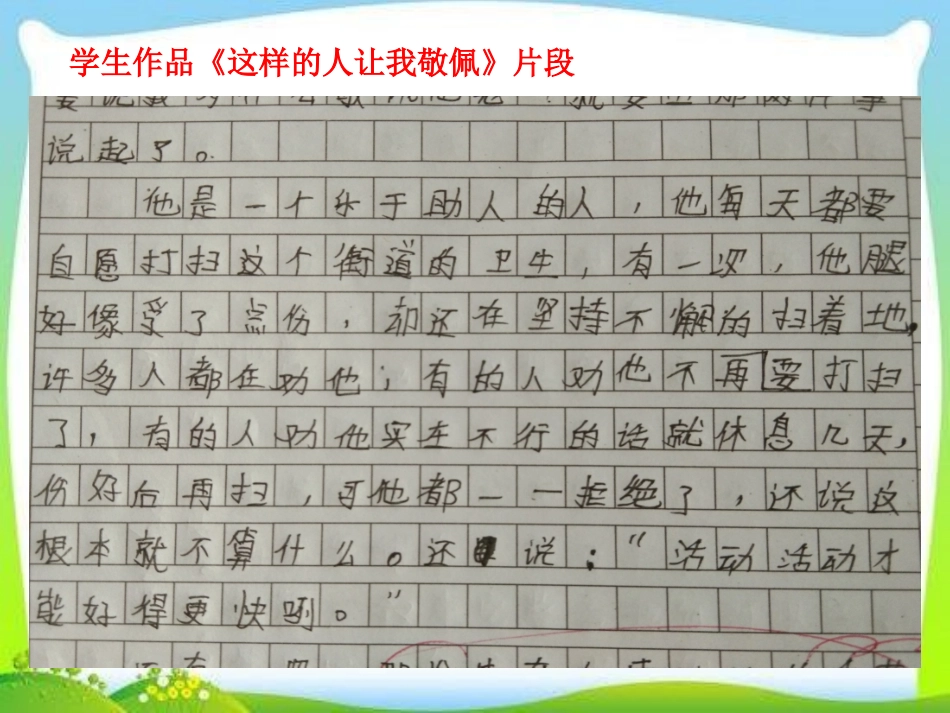 学生作品《这样的人让我敬佩》片段
说起了。
他是一个乐于助人的人，他每天都要
自愿打扫这个街道的卫生，有一次，他腿
好像受了点份，却还在坚持不懈的扫着地，
许多人都在劝他；有的人劝他不再要打扫
了，有的人劝他实在不行的话就休息几天，
份好后再扫，可他都一一拒绝了，还说这
根本就不算什么。还说：“活动活动才
能好得更快咧。”